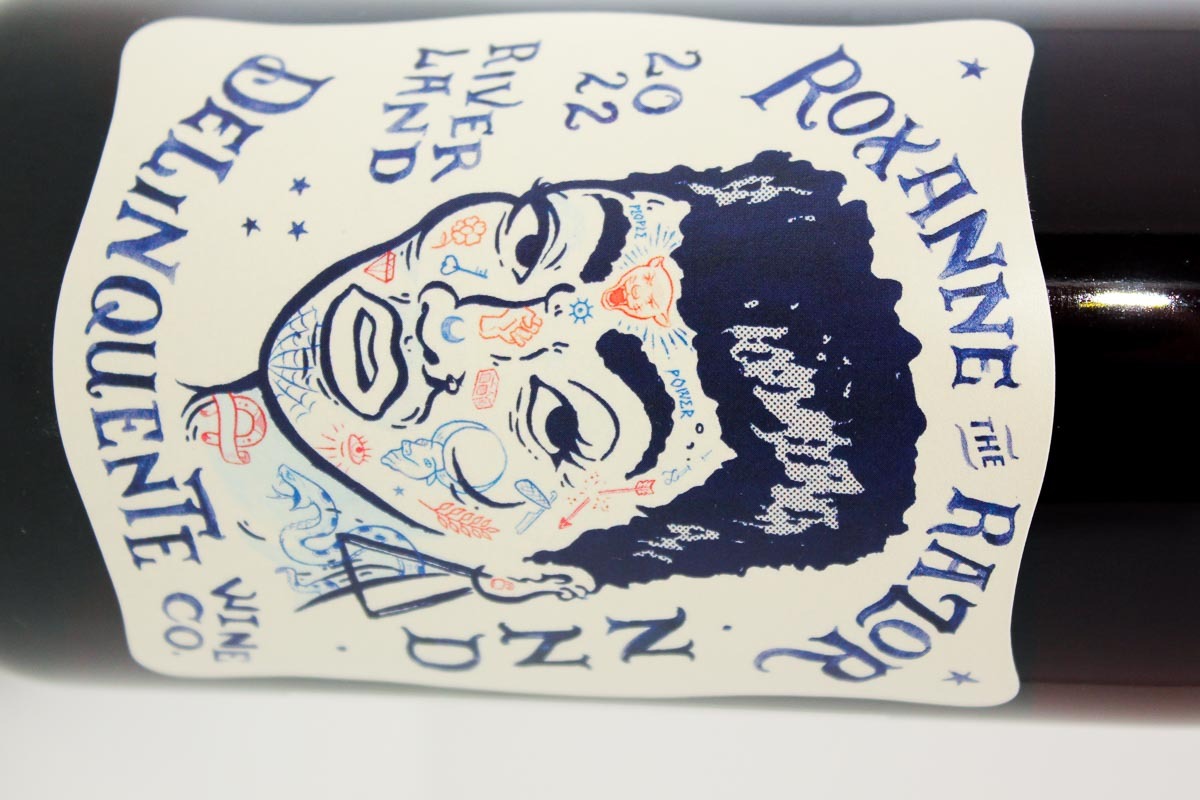 ROXANNE THE RAZOR
PEOPLE
POWER
20
22
N
N
D
RIVER
LAND
DELINQUENTE
WINE
CO.